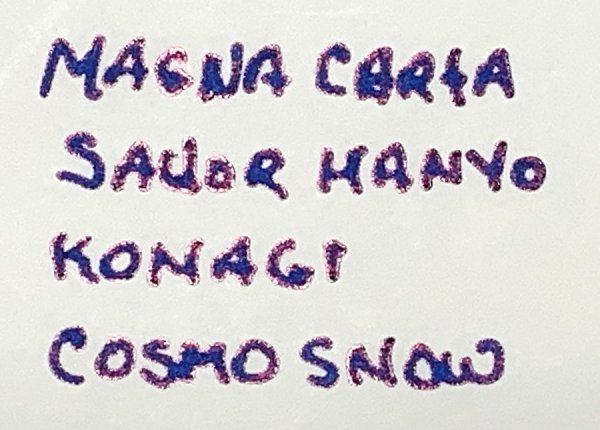 MAGNA CARTA
SAILOR MANYO
KONAGI
COSMO SNOW